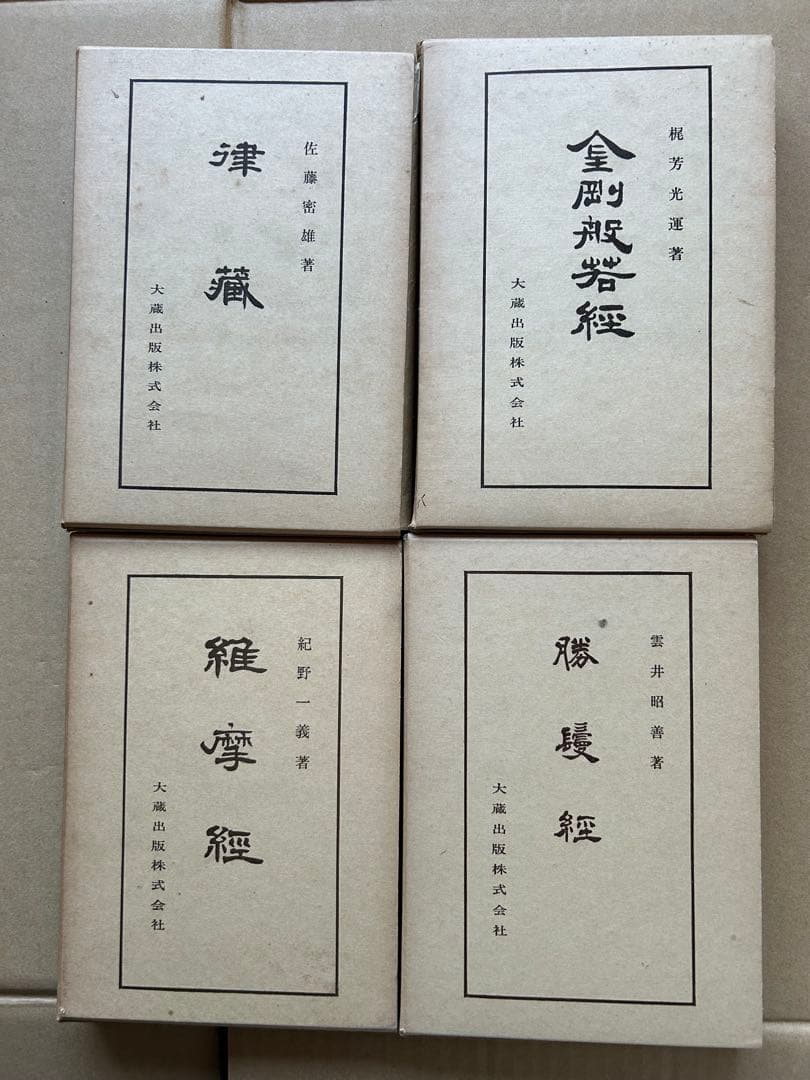 佐藤密雄著
律藏
大蔵出版株式会社
梶芳光運著
金剛般若經
大蔵出版株式会社
紀野一義著
維摩經
大蔵出版株式会社
雲井昭善著
勝鬘經
大蔵出版株式会社